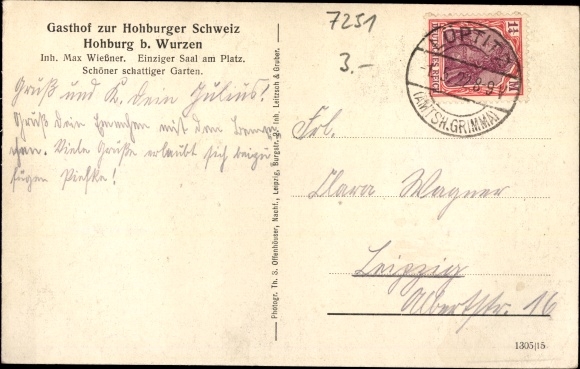 Gasthof zur Hohburger Schweiz
Hohburg b. Wurzen
Inh. Max Wießner. Einziger Saal am Platz.
Schöner schattiger Garten.
Gruß und K. dein Julius.
Gruß dein
mit den
Viele Grüße erlaubt sich beizu
fügen Piefke!
Photogr. Th. S. Offenhäuser, Nachf., Leipzig, Burgstr. Inh. Leitzsch & Gruber.
7251
3.-
1¼ M
LÜPTITZ
(AMTSH. GRIMMA)
Frl.
Clara Wagner
Leipzig
Albertstr. 16
1305/15